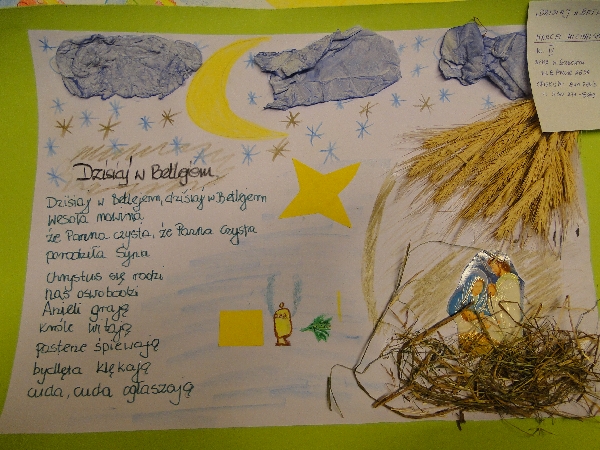 Dzisiaj w Betlejem
Dzisiaj w Betlejem, dzisiaj w Betlejem
wesoła nowina
że Panna czysta, że Panna czysta
porodziła Syna
Chrystus się rodzi
nas oswobodzi
Anieli grają
króle witają
pasterze śpiewają
bydlęta klękają
cuda, cuda ogłaszają